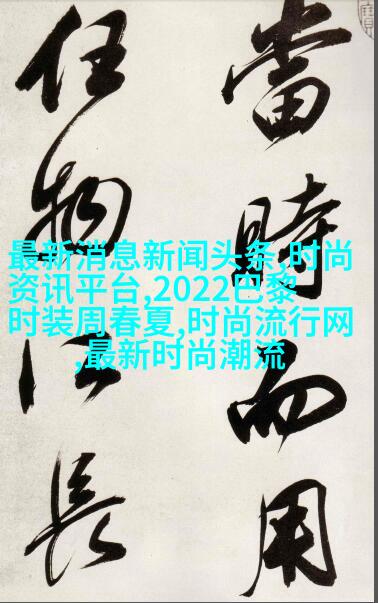 當時而用
任物以長
最新消息新闻头条,时尚
资讯平台,2022巴黎
时装周春夏,时尚流行网
,最新时尚潮流